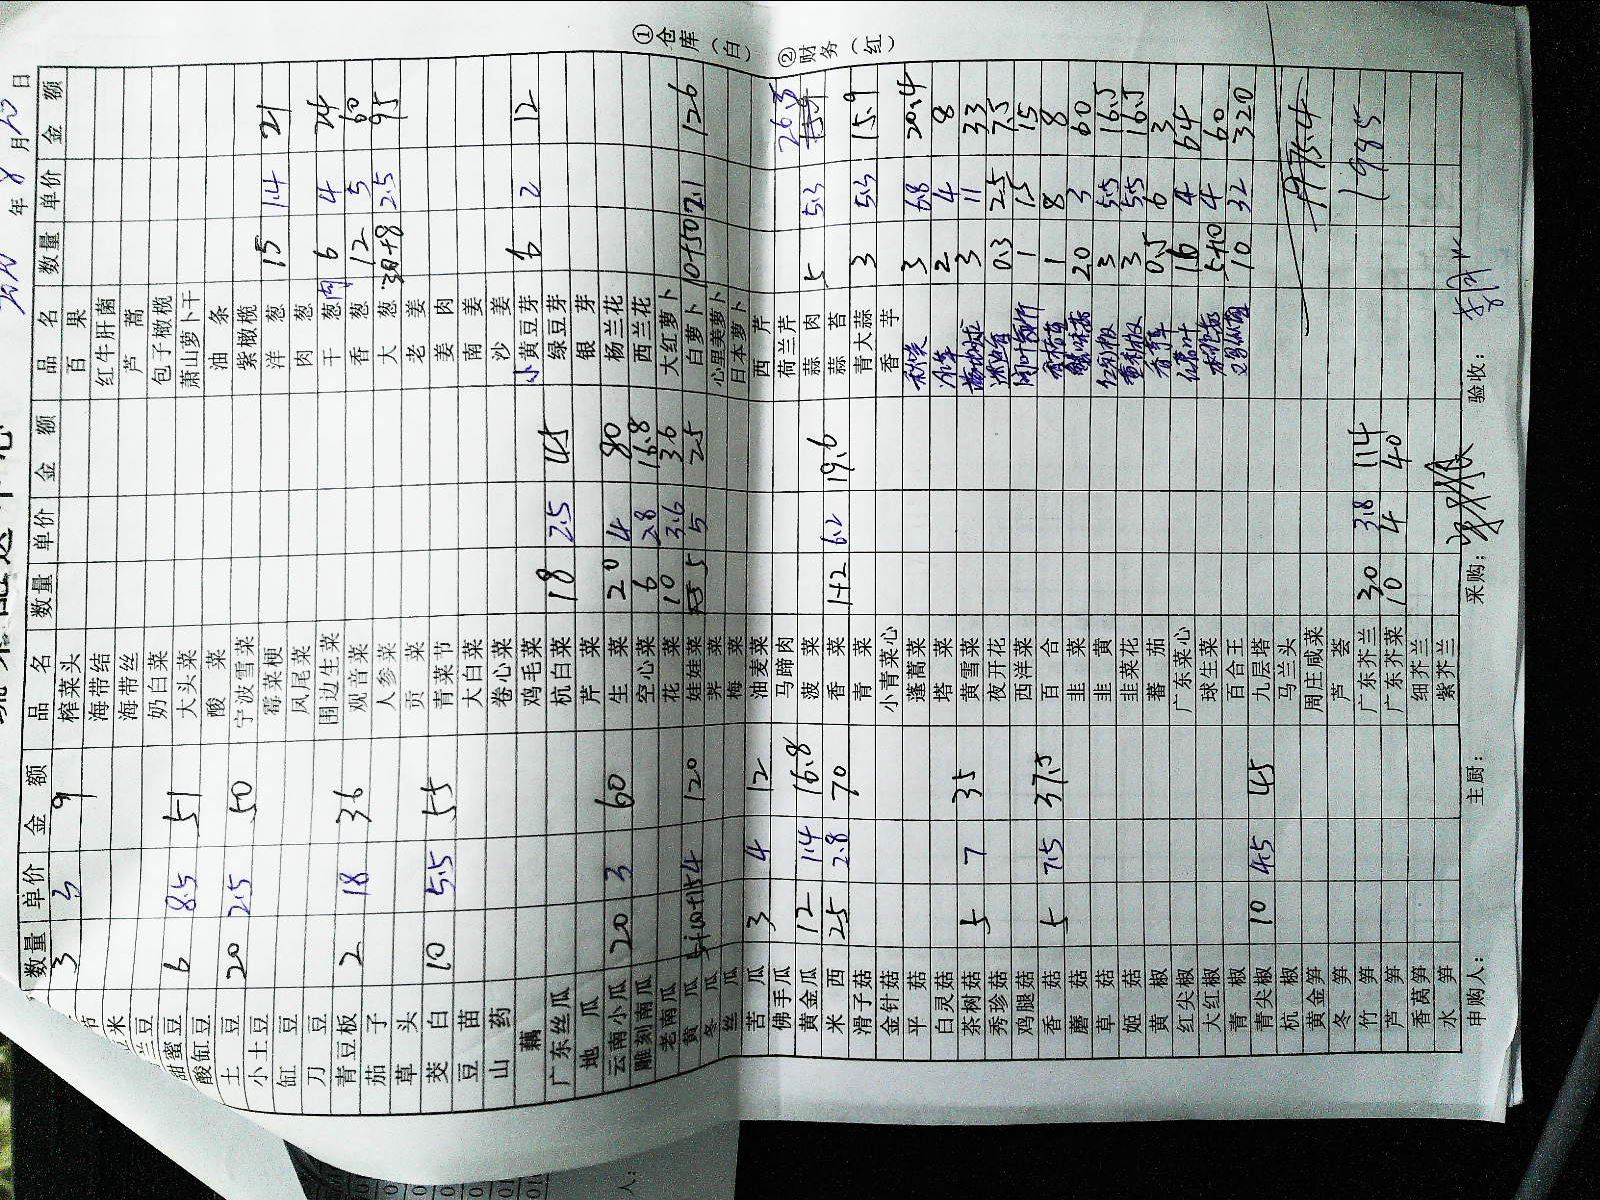 年8月20日
数量 单价 金额 品名 数量 单价 金额 品名 数量 单价 金额
节 3 3 9 榨菜头 百果
米 海带结 红牛肝菌
兰豆 海带丝 芦蒿
甜蜜豆 6 8.5 51 奶白菜 包子橄榄
酸缸豆 大头菜 萧山萝卜干
土豆 20 2.5 50 酸菜 油条
小土豆 宁波雪菜 紫橄榄
缸豆 霉菜梗 洋葱 15 1.4 21
刀豆 凤尾菜 肉葱
青豆板 2 18 36 围边生菜 干葱肉 6 4 24
茄子 观音菜 香葱 12 5 60
草头 人参菜 大葱 30+8 2.5 95
茭白 10 5.5 55 贡菜 老姜
豆苗 青菜节 姜肉
山药 大白菜 南姜
藕 卷心菜 沙姜
广东丝瓜 鸡毛菜 小黄豆芽 6 2 12
地瓜 杭白菜 18 2.5 45 绿豆芽
云南小瓜 20 3 60 芹菜 银芽
雕刻南瓜 生菜 20 4 80 杨兰花
老南瓜 空心菜 6 2.8 16.8 西兰花
黄瓜 4 120 花菜 10 3.6 3.6 大红萝卜
冬瓜 娃娃菜 5 5 25 白萝卜 10+50 2.1 126
丝瓜 荠菜 心里美萝卜
梅菜 日本萝卜
苦瓜 3 4 12 油麦菜 西芹
佛手瓜 马蹄肉 荷兰芹
黄金瓜 12 1.4 16.8 菠菜 蒜肉 5 5.3 26.5
米西 25 2.8 70 香菜 1+2 6.2 19.6 蒜苔
滑子菇 青菜 青大蒜 3 5.3 15.9
金针菇 小青菜心 香芋
平菇 蓬蒿菜 3 6.8 20.4
白灵菇 塔菜 2 4 8
茶树菇 5 7 35 黄雪菜 3 11 33
秀珍菇 夜开花 0.3 25 7.5
鸡腿菇 西洋菜 1 15 15
香菇 5 7.5 37.5 百合 1 8 8
蘑菇 韭菜 20 3 60
草菇 韭黄 3 5.5 16.5
姬菇 韭菜花 3 5.5 16.5
黄椒 番茄 0.5 6 3
红尖椒 广东菜心 16 4 64
大红椒 球生菜 5+10 4 60
青椒 百合王 10 32 320
青尖椒 10 4.5 45 九层塔
杭椒 马兰头
黄金笋 周庄咸菜 1975.4
冬笋 芦荟
竹笋 广东芥兰 30 3.8 114 1985
芦笋 广东芥菜 10 4 40
香莴笋 细芥兰
水笋 紫芥兰
申购人： 主厨： 采购： 验收：
①仓库（白）
②财务（红）
人：